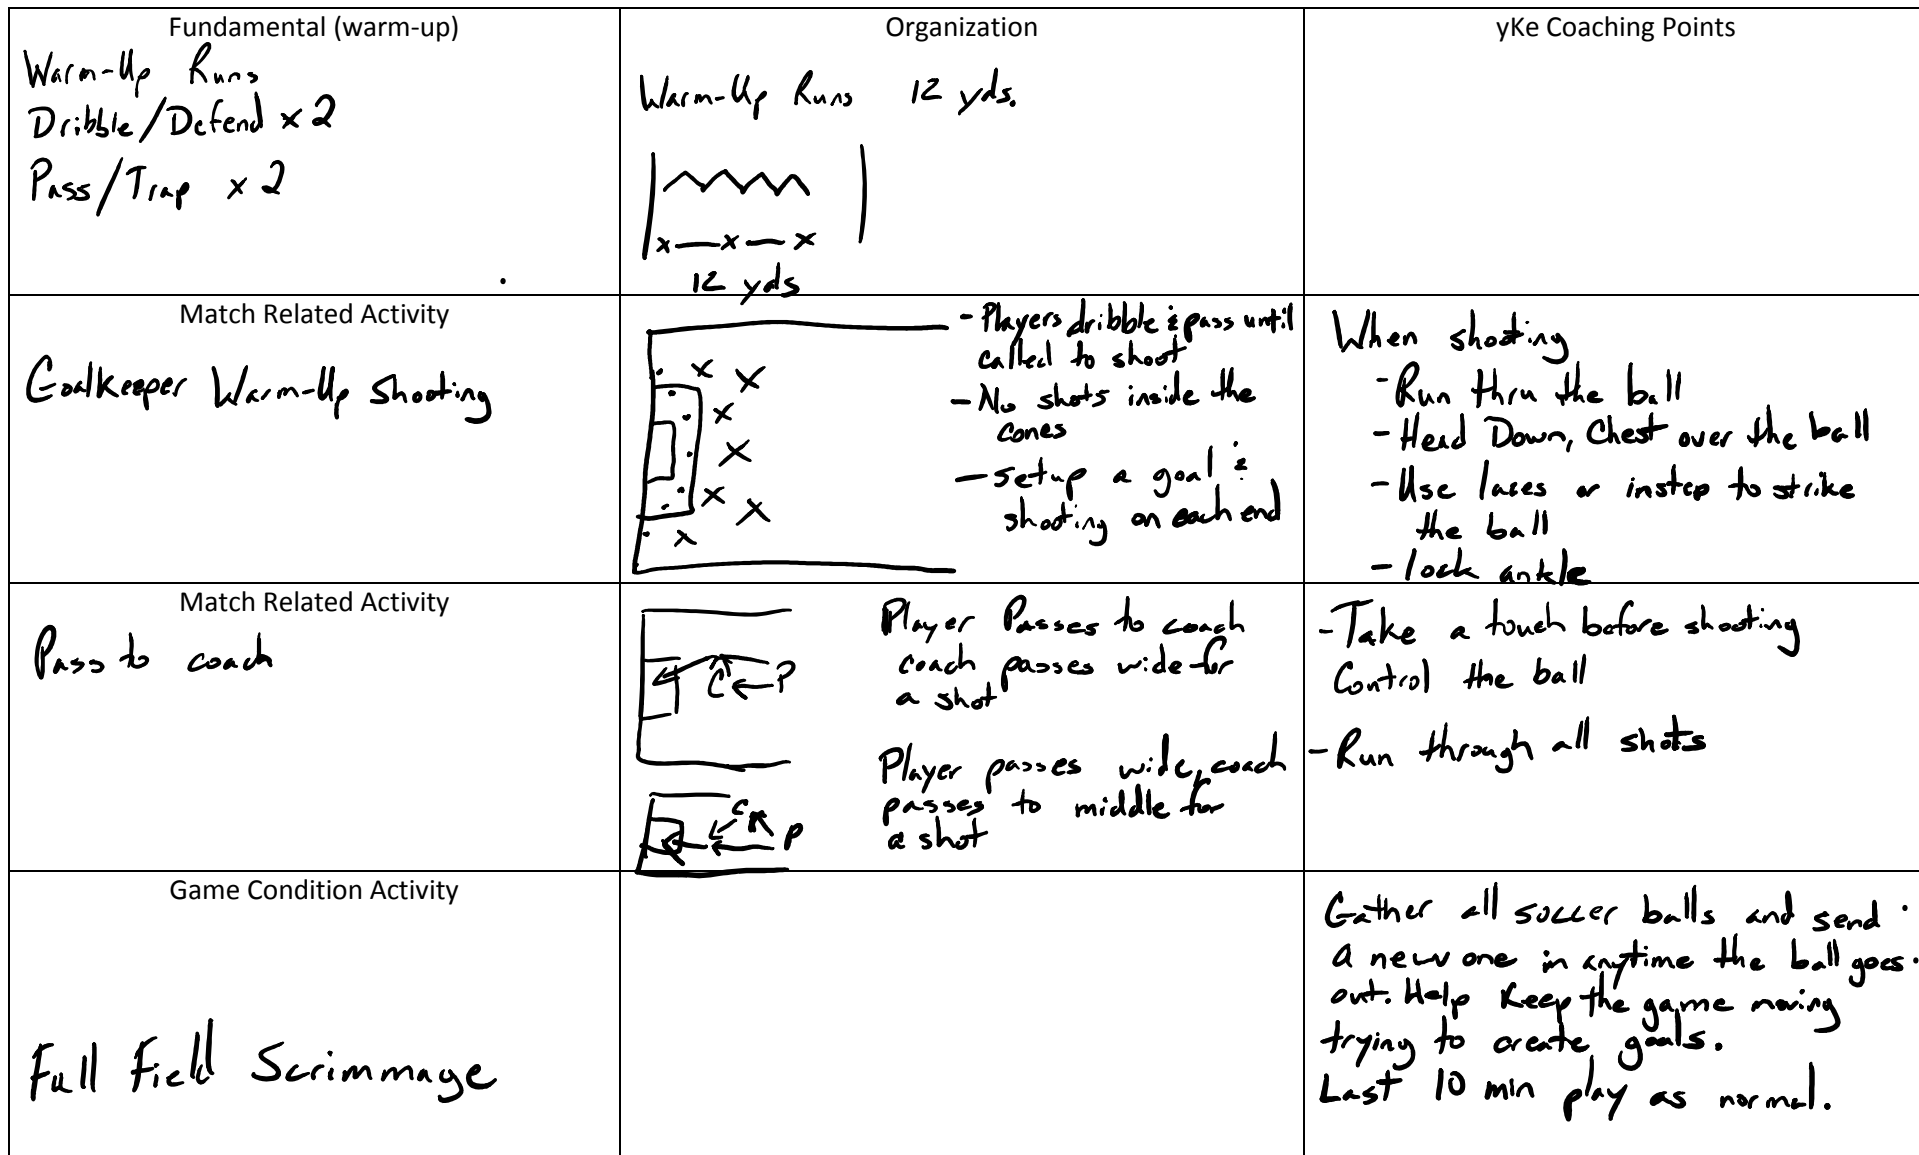 Fundamental (warm-up)
Warm-Up Runs
Dribble/Defend x 2
Pass/Trap x 2
Organization
Warm-Up Runs 12 yds.
x x x
12 yds
yKe Coaching Points
Match Related Activity
Goalkeeper Warm-Up Shooting
X X
X
X
X X
X
- Players dribble & pass until
called to shoot
- No shots inside the
cones
- setup a goal &
shooting on each end
When shooting
- Run thru the ball
- Head Down, Chest over the ball
- Use laces or instep to strike
the ball
- lock ankle
Match Related Activity
Pass to coach
C P
Player Passes to coach
coach passes wide for
a shot
C P
Player passes wide, coach
passes to middle for
a shot
- Take a touch before shooting
Control the ball
- Run through all shots
Game Condition Activity
Full Field Scrimmage
Gather all soccer balls and send
a new one in anytime the ball goes
out. Help Keep the game moving
trying to create goals.
Last 10 min play as normal.